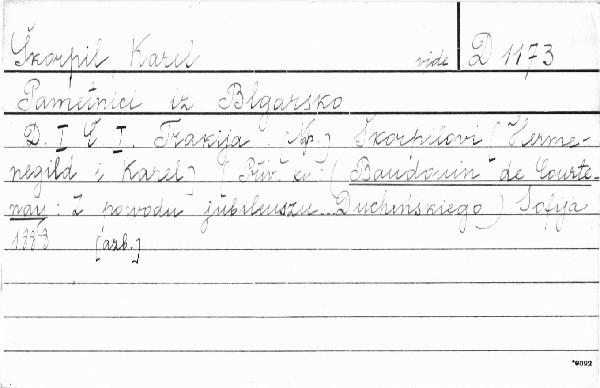 Škorpil, Karel vide D 1173
Pametnici iz Blgarsko
D. I Č I. Trakija. [Np.] Škorpilovi [Herme-
negild i Karel] [Přiv. ku: (Baudouin de Courte-
nay: Z powodu jubileuszu... Duchińskiego) Sofija
1888 [azb.]
*6092